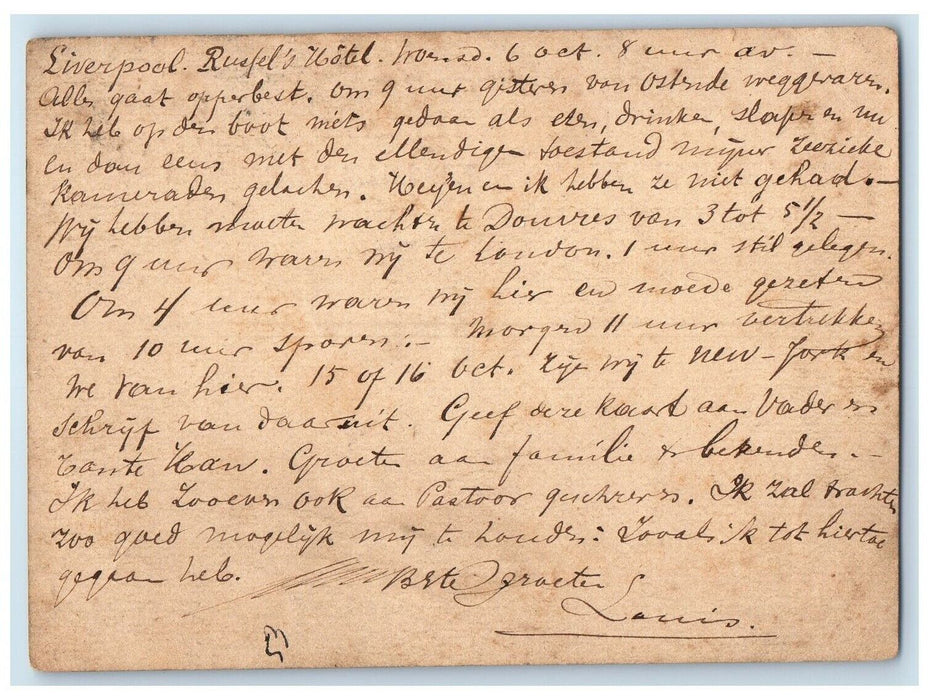 Liverpool. Russel's Hôtel. Woensd. 6 oct. 8 uur av. —
Alles gaat opperbest. om 9 uur gisteren van Ostende weggevaren.
Ik heb op den boot niets gedaan als eten, drinken, slapen en nu
en dan eens met den ellendigen toestand mijner zeezieke
kameraden gelachen. Heijen en ik hebben ze niet gehad. —
Wij hebben moeten wachten te Douvres van 3 tot 5 1/2 —
Om 9 uur waren wij te London. 1 uur stil gelegen.
Om 4 uur waren wij hier en moede gezeten
van 10 uur sporen. — Morgen 11 uur vertrekken
we van hier. 15 of 16 oct. zijn wij te New-York en
schrijf van daar uit. Geef deze kaart aan Vader en
Tante Han. Groeten aan familie & bekenden. —
Ik heb zooeven ook aan Pastoor geschreven. Ik zal trachten
zoo goed mogelijk mij te houden: Zooals ik tot hiertoe
gegaan heb. Beste groeten
Louis.